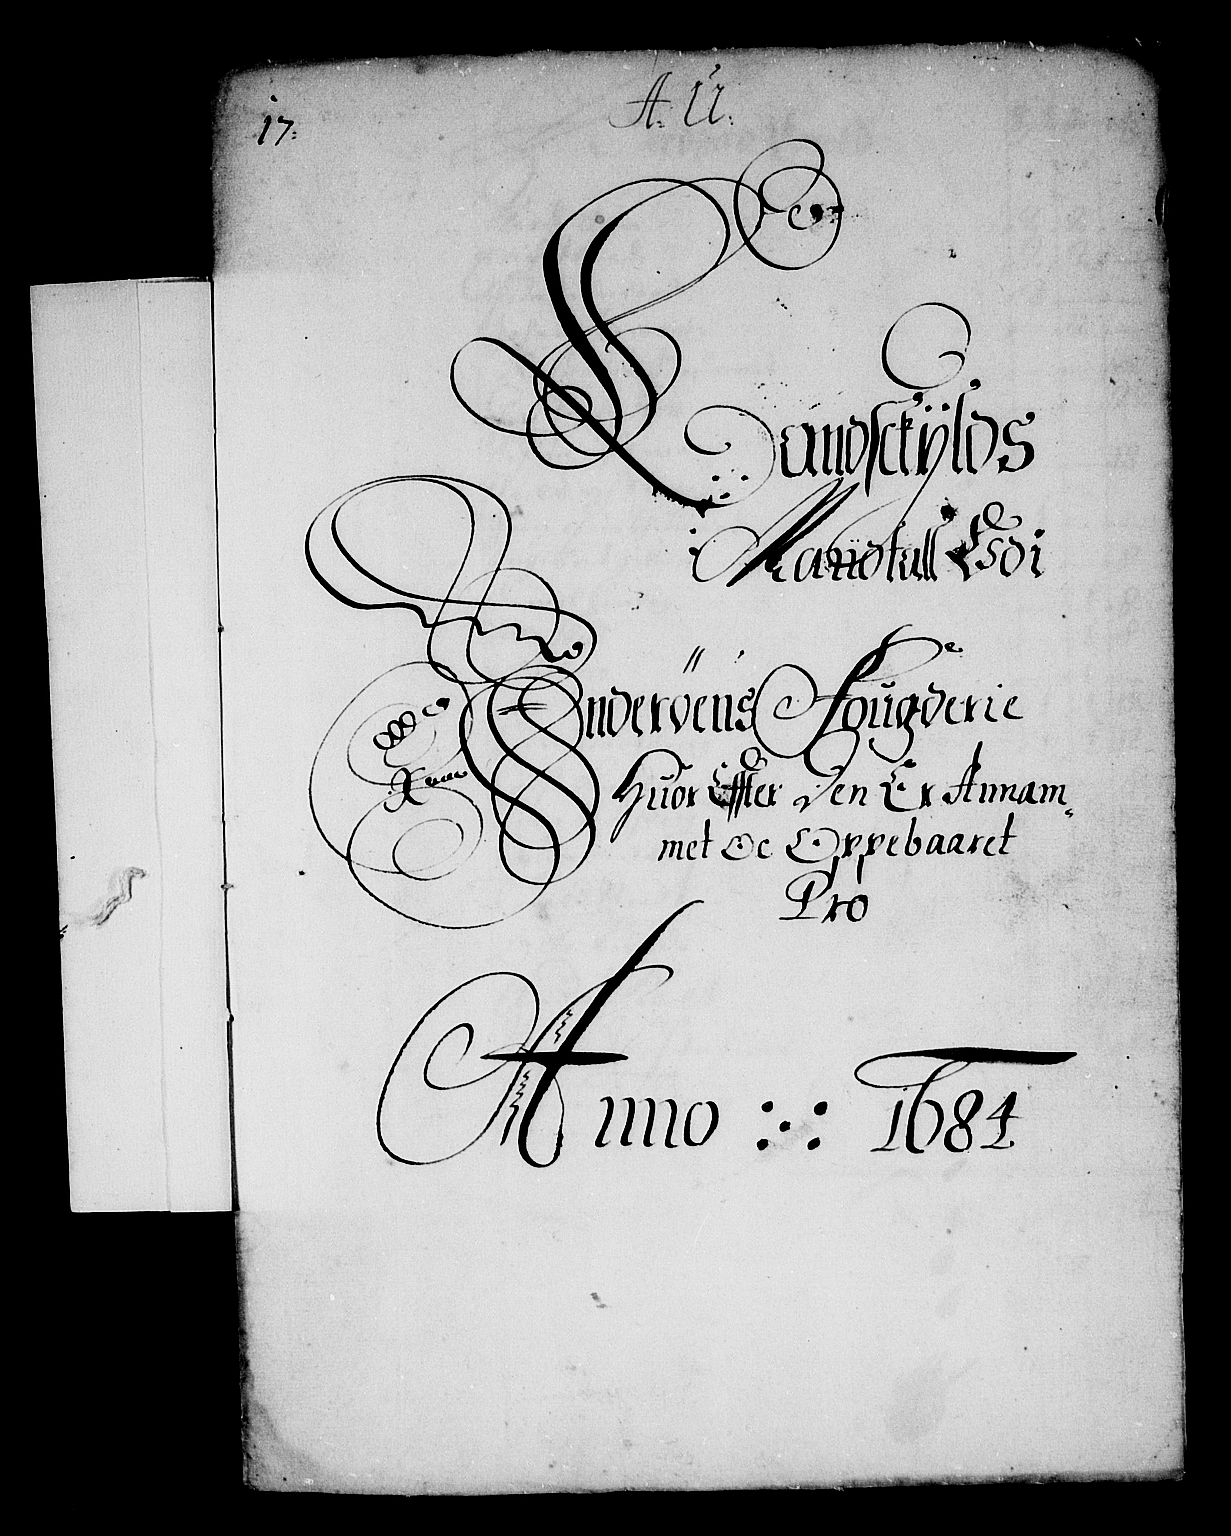 17:
A: Ü:
Landsckÿlds
Mandtall Udi
Inderöens Fougderie
Huor Effter Den Er Annam-
met Oc Oppebaaret
Pro
Anno 1684